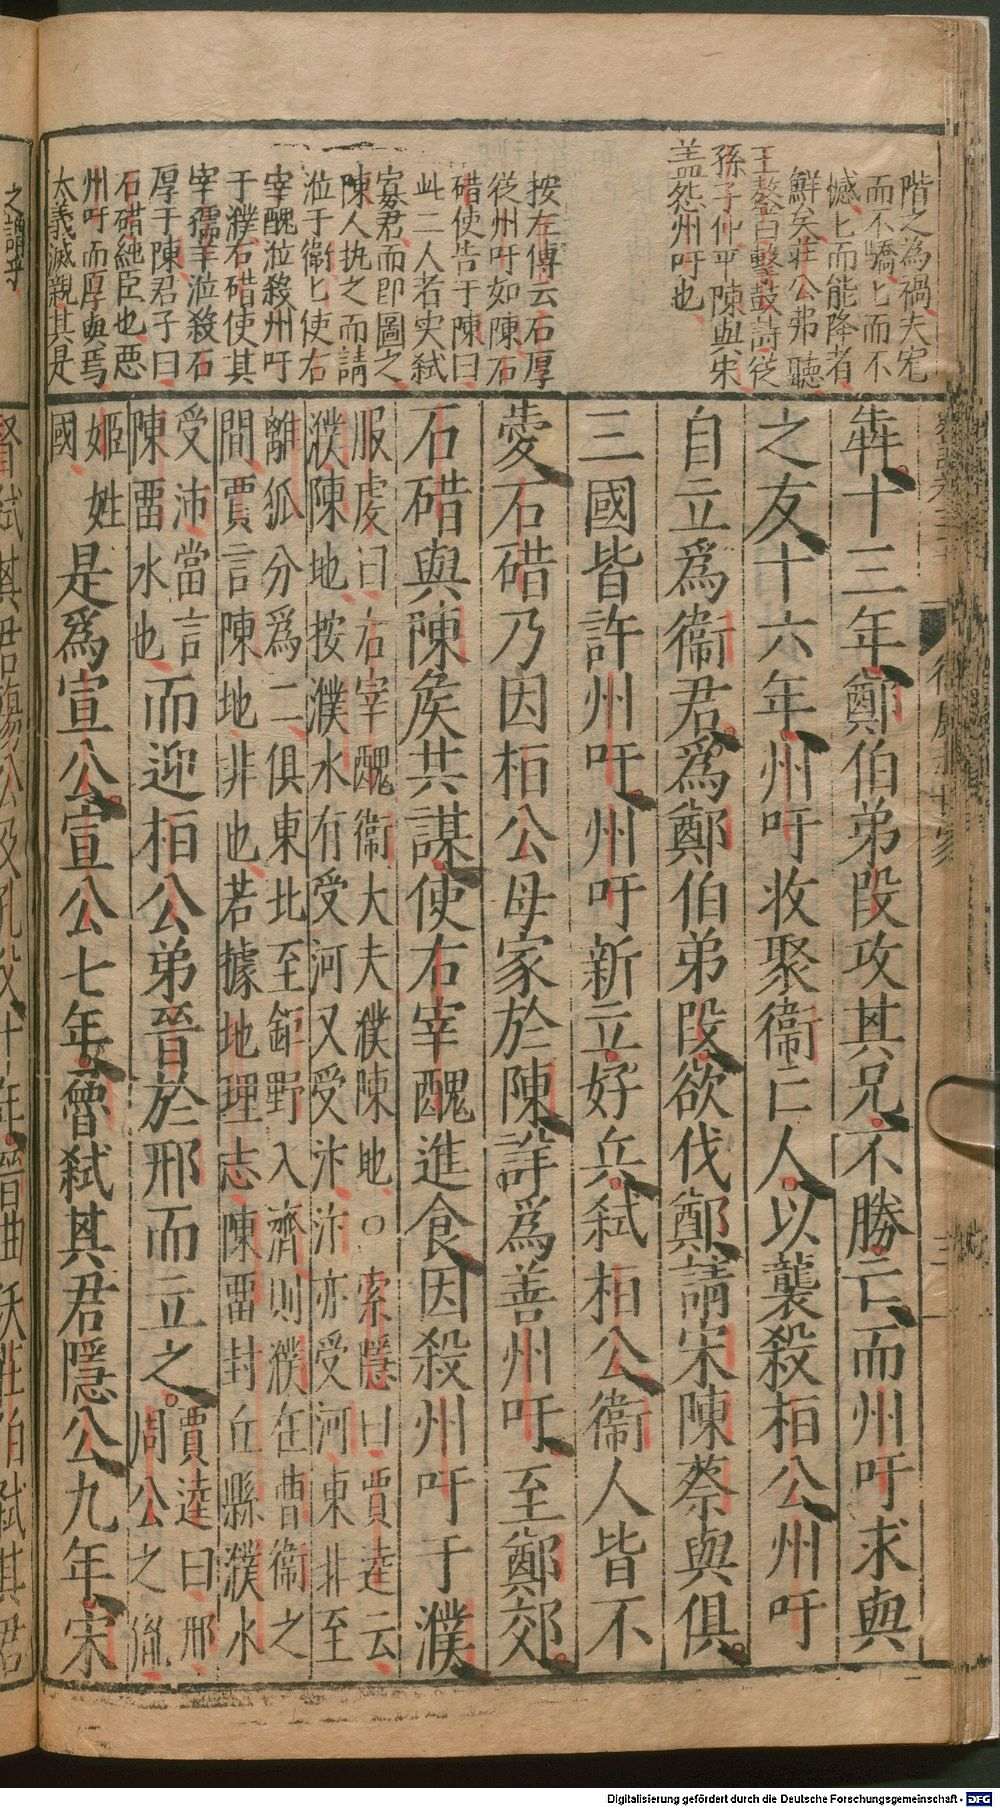 階之為禍夫寵
而不驕匕而不
憾匕而能降者
鮮矣莊公弗聽
王鏊曰擊鼓詩從
孫子仲平陳與宋
盖怨州吁也
按左傳云石厚
從州吁如陳石
碏使告于陳曰
此二人者实弑
寡君而即圖之
陳人执之而請
涖于衛匕使右
宰醜涖殺州吁
于濮右碏使其
宰獳羊涖殺石
厚于陳君子曰
石碏純臣也惡
州吁而厚與焉
大義滅親其是
犇十三年鄭伯弟段攻其兄不勝亡而州吁求與
之友十六年州吁收聚衞亡人以襲殺栢公州吁
自立爲衞君爲鄭伯弟段欲伐鄭請宋陳蔡與俱
三國皆許州吁州吁新立好兵弑栢公衞人皆不
愛石碏乃因栢公母家於陳詳爲善州吁至鄭郊
石碏與陳侯共謀使右宰醜進食因殺州吁于濮
服虔曰右宰醜衞大夫濮陳地○索隱曰賈逵云
濮陳地按濮水有受河又受汴汴亦受河東非至
離狐分爲二俱東北至鉅野入濟則濮在曹衞之
間賈言陳地非也若據地理志陳畱封丘縣濮水
受沛當言
陳畱水也而迎栢公弟晉於邢而立之賈逵曰邢
周公之胤
姬姓
國是爲宣公宣公七年魯弑其君隱公九年宋
之謂乎
督弑其君殤公及孔父十年晉曲沃莊伯弑其君
Digitalisierung gefördert durch die Deutsche Forschungsgemeinschaft - DFG